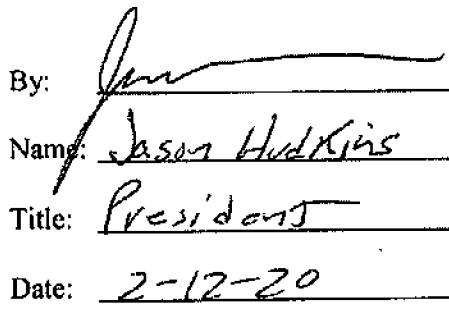 By:
Name: Jason Hudkins
Title: President
Date: 2-12-20